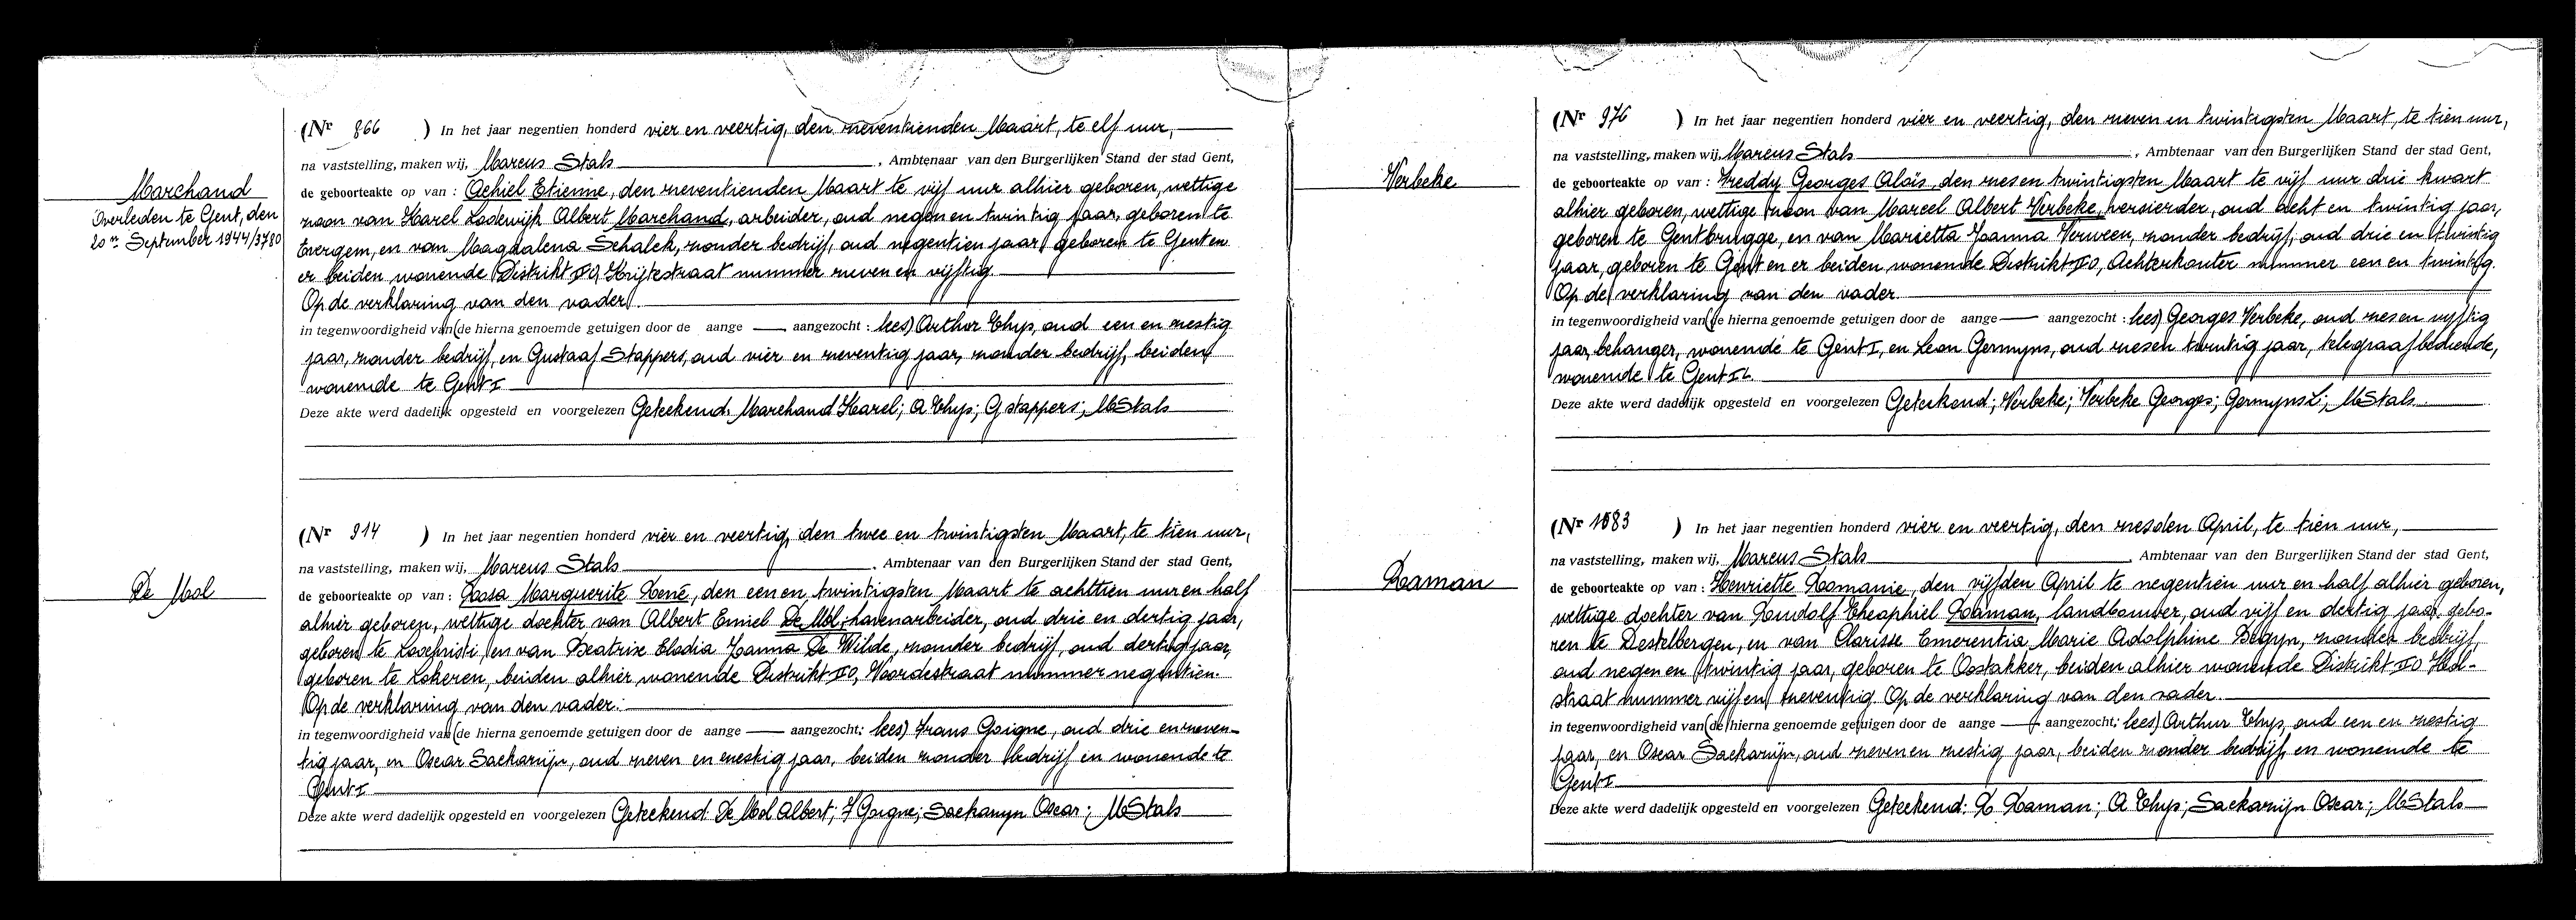 Marchand
Overleden te Gent, den
20en September 1944/3780
(Nr 866 ) In het jaar negentien honderd vier en veertig, den zeventienden Maart, te elf uur,
na vaststelling, maken wij, Marcus Stals , Ambtenaar van den Burgerlijken Stand der stad Gent,
de geboorteakte op van : Achiel Etienne, den zeventienden Maart te vijf uur alhier geboren, wettige
zoon van Karel Lodewijk Albert Marchand, arbeider, oud negen en twintig jaar, geboren te
Evergem, en van Magdalena Schalck, zonder bedrijf, oud negentien jaar, geboren te Gent en
er beiden wonende Distrikt IO, Krijtestraat nummer zeven en vijftig.
Op de verklaring van den vader.
in tegenwoordigheid van (de hierna genoemde getuigen door de aange — aangezocht : lees) Arthur Thys, oud een en zestig
jaar, zonder bedrijf, en Gustaaf Stappers, oud vier en zeventig jaar, zonder bedrijf, beiden
wonende te Gent I
Deze akte werd dadelijk opgesteld en voorgelezen Geteekend: Marchand Karel; A Thys; G Stappers; MStals
De Mol
(Nr 914 ) In het jaar negentien honderd vier en veertig, den twee en twintigsten Maart, te tien uur,
na vaststelling, maken wij, Marcus Stals , Ambtenaar van den Burgerlijken Stand der stad Gent,
de geboorteakte op van : Rosa Marguerite René, den een en twintigsten Maart te achttien uur en half
alhier geboren, wettige dochter van Albert Emiel De Mol, havenarbeider, oud drie en dertig jaar,
geboren te Loochristi, en van Beatrix Elodia Joanna De Wilde, zonder bedrijf, oud dertig jaar,
geboren te Lokeren, beiden alhier wonende Distrikt IO, Voordestraat nummer negentien.
Op de verklaring van den vader.
in tegenwoordigheid van (de hierna genoemde getuigen door de aange — aangezocht : lees) Frans Goigne, oud drie en zeven-
tig jaar, en Oscar Sackarnijn, oud zeven en zestig jaar, beiden zonder bedrijf en wonende te
Gent I
Deze akte werd dadelijk opgesteld en voorgelezen Geteekend: De Mol Albert; F Goigne; Sackarnyn Oscar; MStals
Verbeke
(Nr 976 ) In het jaar negentien honderd vier en veertig, den zeven en twintigsten Maart, te tien uur,
na vaststelling, maken wij, Marcus Stals , Ambtenaar van den Burgerlijken Stand der stad Gent,
de geboorteakte op van : Freddy Georges Aloïs, den zes en twintigsten Maart te vijf uur drie kwart
alhier geboren, wettige zoon van Marcel Albert Verbeke, versierder, oud acht en twintig jaar,
geboren te Gentbrugge, en van Marietta Joanna Verween, zonder bedrijf, oud drie en twintig
jaar, geboren te Gent en er beiden wonende Distrikt IO, Achterkouter nummer een en twintig.
Op de verklaring van den vader.
in tegenwoordigheid van (de hierna genoemde getuigen door de aange — aangezocht : lees) Georges Verbeke, oud zes en vijftig
jaar, behanger, wonende te Gent I, en Leon Germyns, oud zes en twintig jaar, telegraafbediende,
wonende te Gent IL.
Deze akte werd dadelijk opgesteld en voorgelezen Geteekend; Verbeke; Verbeke Georges; Germyns L; MStals.
Raman
(Nr 1083 ) In het jaar negentien honderd vier en veertig, den zesden April, te tien uur,
na vaststelling, maken wij, Marcus Stals , Ambtenaar van den Burgerlijken Stand der stad Gent,
de geboorteakte op van : Henriette Romanie, den vijfden April te negentien uur en half alhier geboren,
wettige dochter van Roudolf Theophiel Raman, landbouwer, oud vijf en dertig jaar, gebo-
ren te Destelbergen, en van Clarisse Emerentia Marie Adolphine Begyn, zonder bedrijf,
oud negen en twintig jaar, geboren te Oostakker, beiden alhier wonende Distrikt IO Hol-
straat nummer vijf en zeventig. Op de verklaring van den vader.
in tegenwoordigheid van (de hierna genoemde getuigen door de aange — aangezocht : lees) Arthur Thys, oud een en zestig
jaar, en Oscar Sackarnijn, oud zeven en zestig jaar, beiden zonder bedrijf, en wonende te
Gent I
Deze akte werd dadelijk opgesteld en voorgelezen Geteekend: R Raman; A Thys; Sackarnijn Oscar; MStals